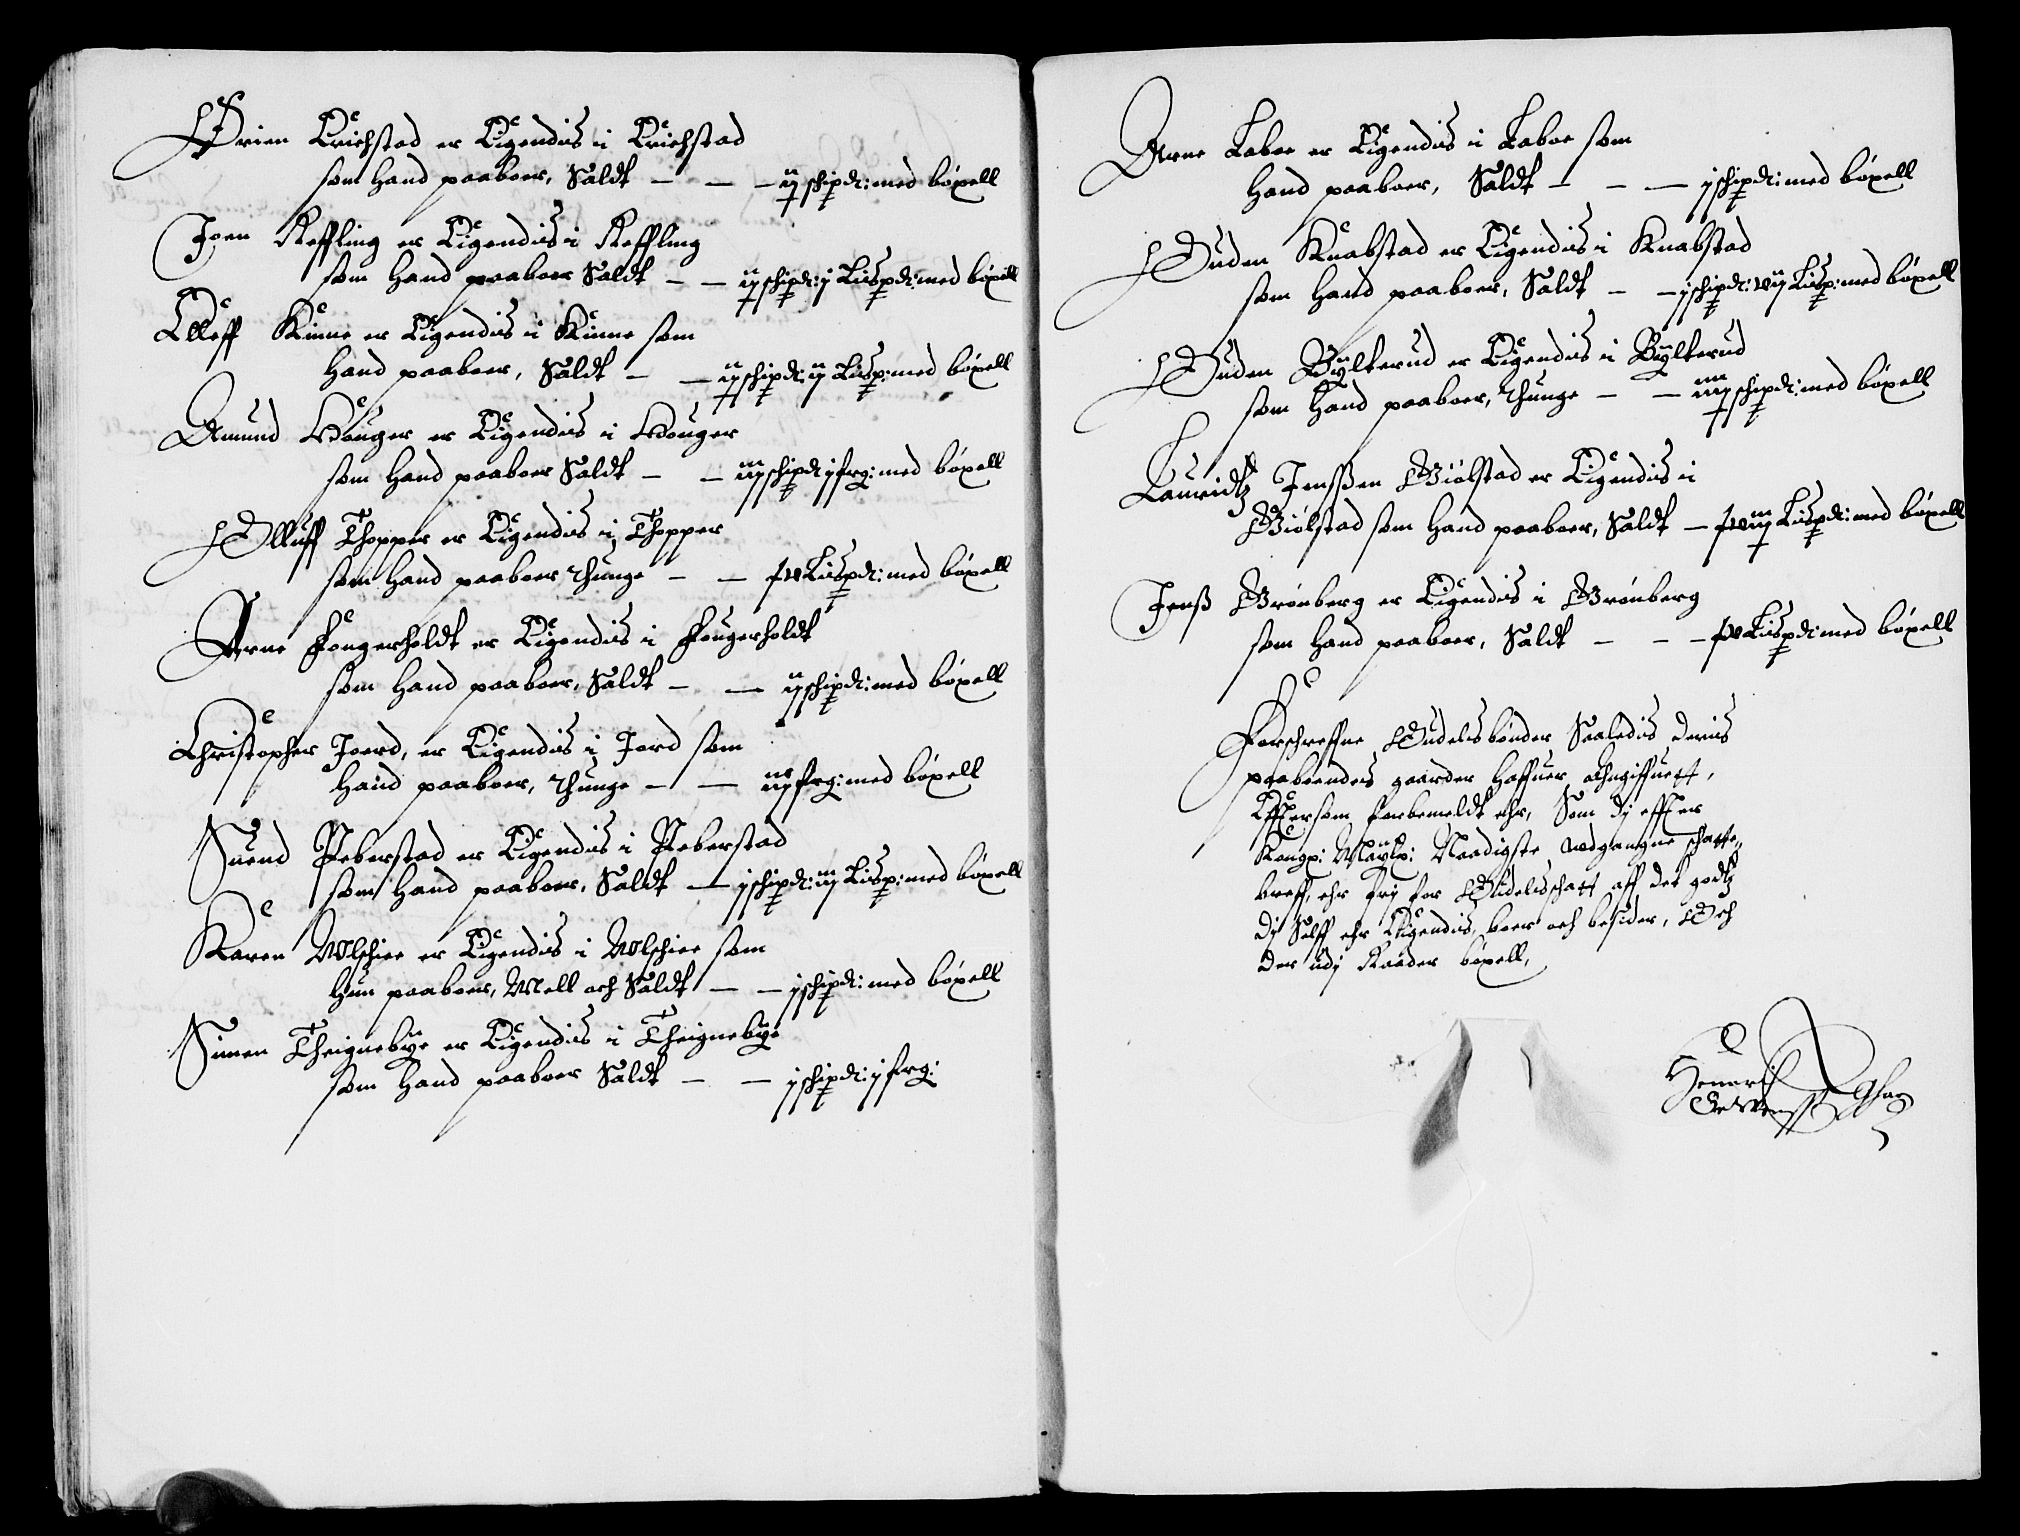 Ørien Erichstad er Eigendis i Erichstad
som hand paaboer, Saldt — — — ij schipdt: med bøxell
Joen Refsling er Eigendis i Refsling
som hand paaboer Saldt — — ij schipdt: j Lispdt: med bøxell
Elleff Kinne er Eigendis i Kinne som
hand paaboer, Saldt — — iij schipdt: ij Lisp: med bøxell
Amund Houger er Eigendis i Houger
som hand paaboer Saldt — — iij schipdt j frg: med bøxell
Olluff Thopper er Eigendis i Thopper
som hand paaboer Thunge — — xv Lispdt: med bøxell
Arne Fougerholdt er Eigendis i Fougerholdt
som hand paaboer, Saldt — — ij schipdt: med bøxell
Christopher Joerd, er Eigendis i Jord som
hand paaboer, Thunge — — iij frg: med bøxell
Suend Peberstad er Eigendis i Peberstad
som hand paaboer, Saldt — j schipdt: iij Lisp: med bøxell
Karen Wlschiee er Eigendis i Wlschiee som
hun paaboer, Mell och Saldt — — j schipdt: med bøxell
Simen Theignebye er Eigendis i Theignebye
som hand paaboer Saldt — — j schipdt: j frg:
Arne Laboe er Eigendis i Laboe som
hand paaboer, Saldt — — — j schipdt: med bøxell
Ouden Knabstad er Eigendis i Knabstad
som hand paaboer, Saldt — — j schipdt: vij Lisp: med bøxell
Ouden Bylterud er Eigendis i Bylterud
som hand paaboer, Thunge — — iiij schipdt: med bøxell
Lauridtz Jenssen Giølstad er Eigendis i
Giølstad som hand paaboer, Saldt — xviij Lispdt: med bøxell
Jenss Grønberg er Eigendis i Grønberg
som hand paaboer, Saldt — — — xv Lispdt: med bøxell
Forschreffne Oudelsbønder Saaledis deris
paaboendes gaarder haffuer Angiffuett,
Efftersom forbemeldt ehr, Som dj effter
Kongl: Maytz: Naadigste udgangne schatte-
breff, ehr frj for Oudelsschatt aff det godtz
dj Self ehr Eigendis, boer och besider, Och
der udj Raader bøxell,
Henerich